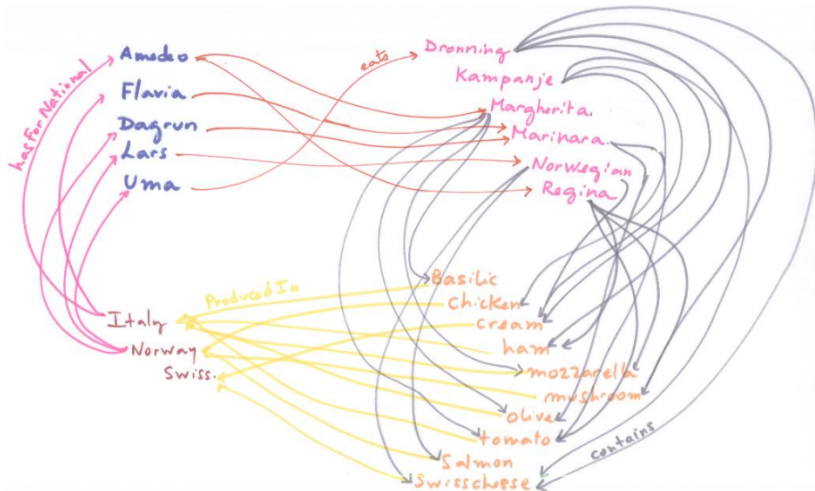 hasForNational
Amedeo
Flavia
Dagrun
Lars
Uma
eats
Dronning
Kampanje
Margherita
Marinara
Norwegian
Regina
ProducedIn
Italy
Norway
Swiss.
Basilic
Chicken
cream
ham
mozzarella
mushroom
Olive
tomato
Salmon
Swisscheese
contains